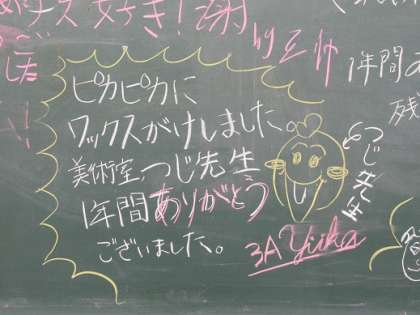 ピカピカに
ワックスがけしました
美術室、つじ先生
1年間ありがとう
ございました。
3A Yuika
つじ先生
by
1年間の
残